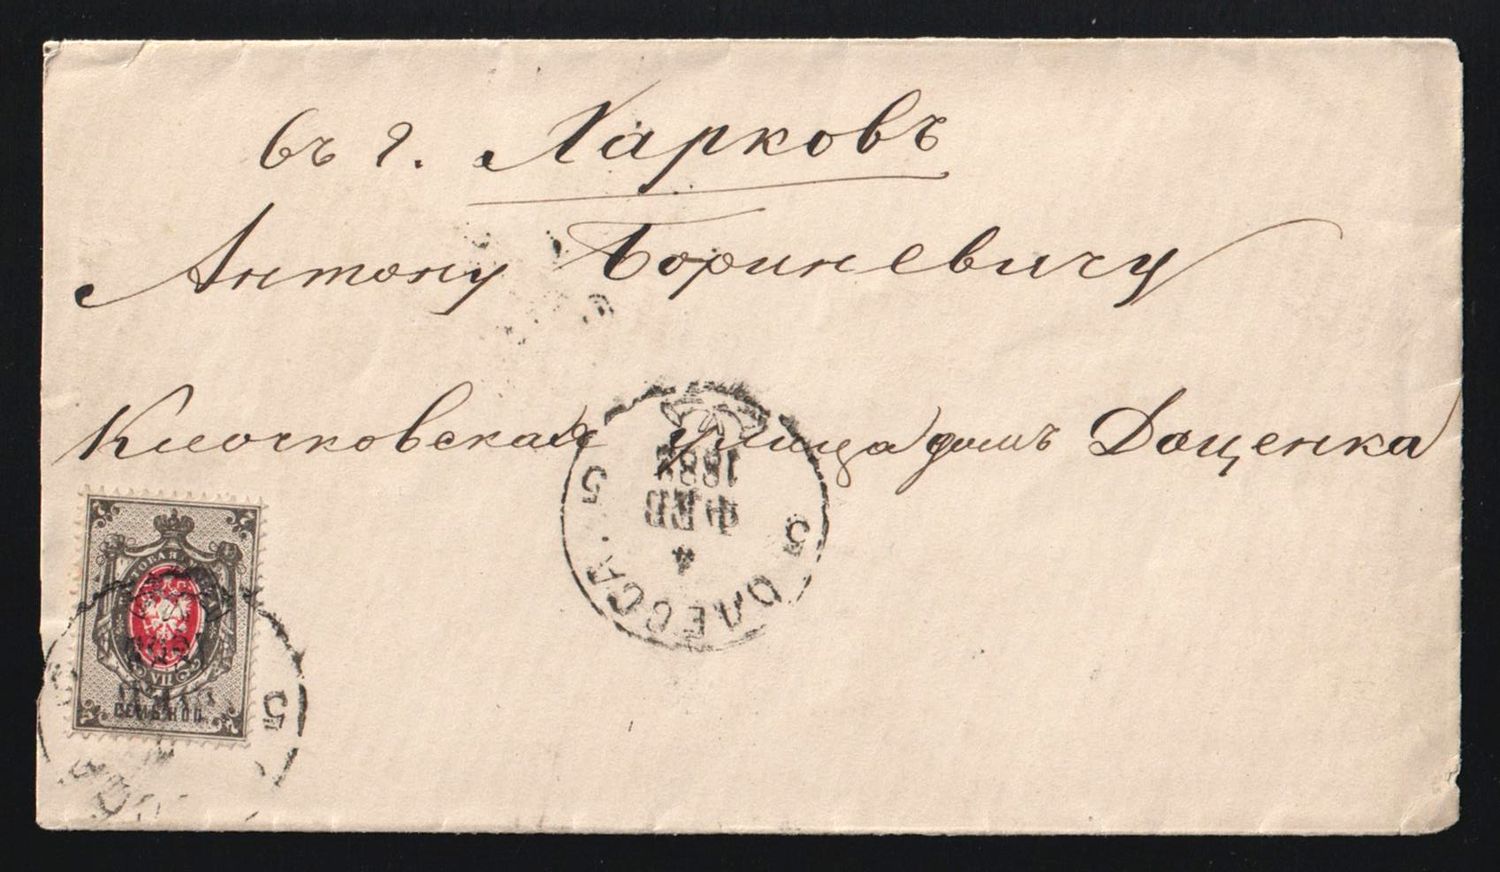 въ г. Харковъ
Антону Бориневичу
Клочковская улица домъ Доценка
5 ОДЕССА. 5
4
ФЕВ
1883
VII
СЕМЬ КОП.
5